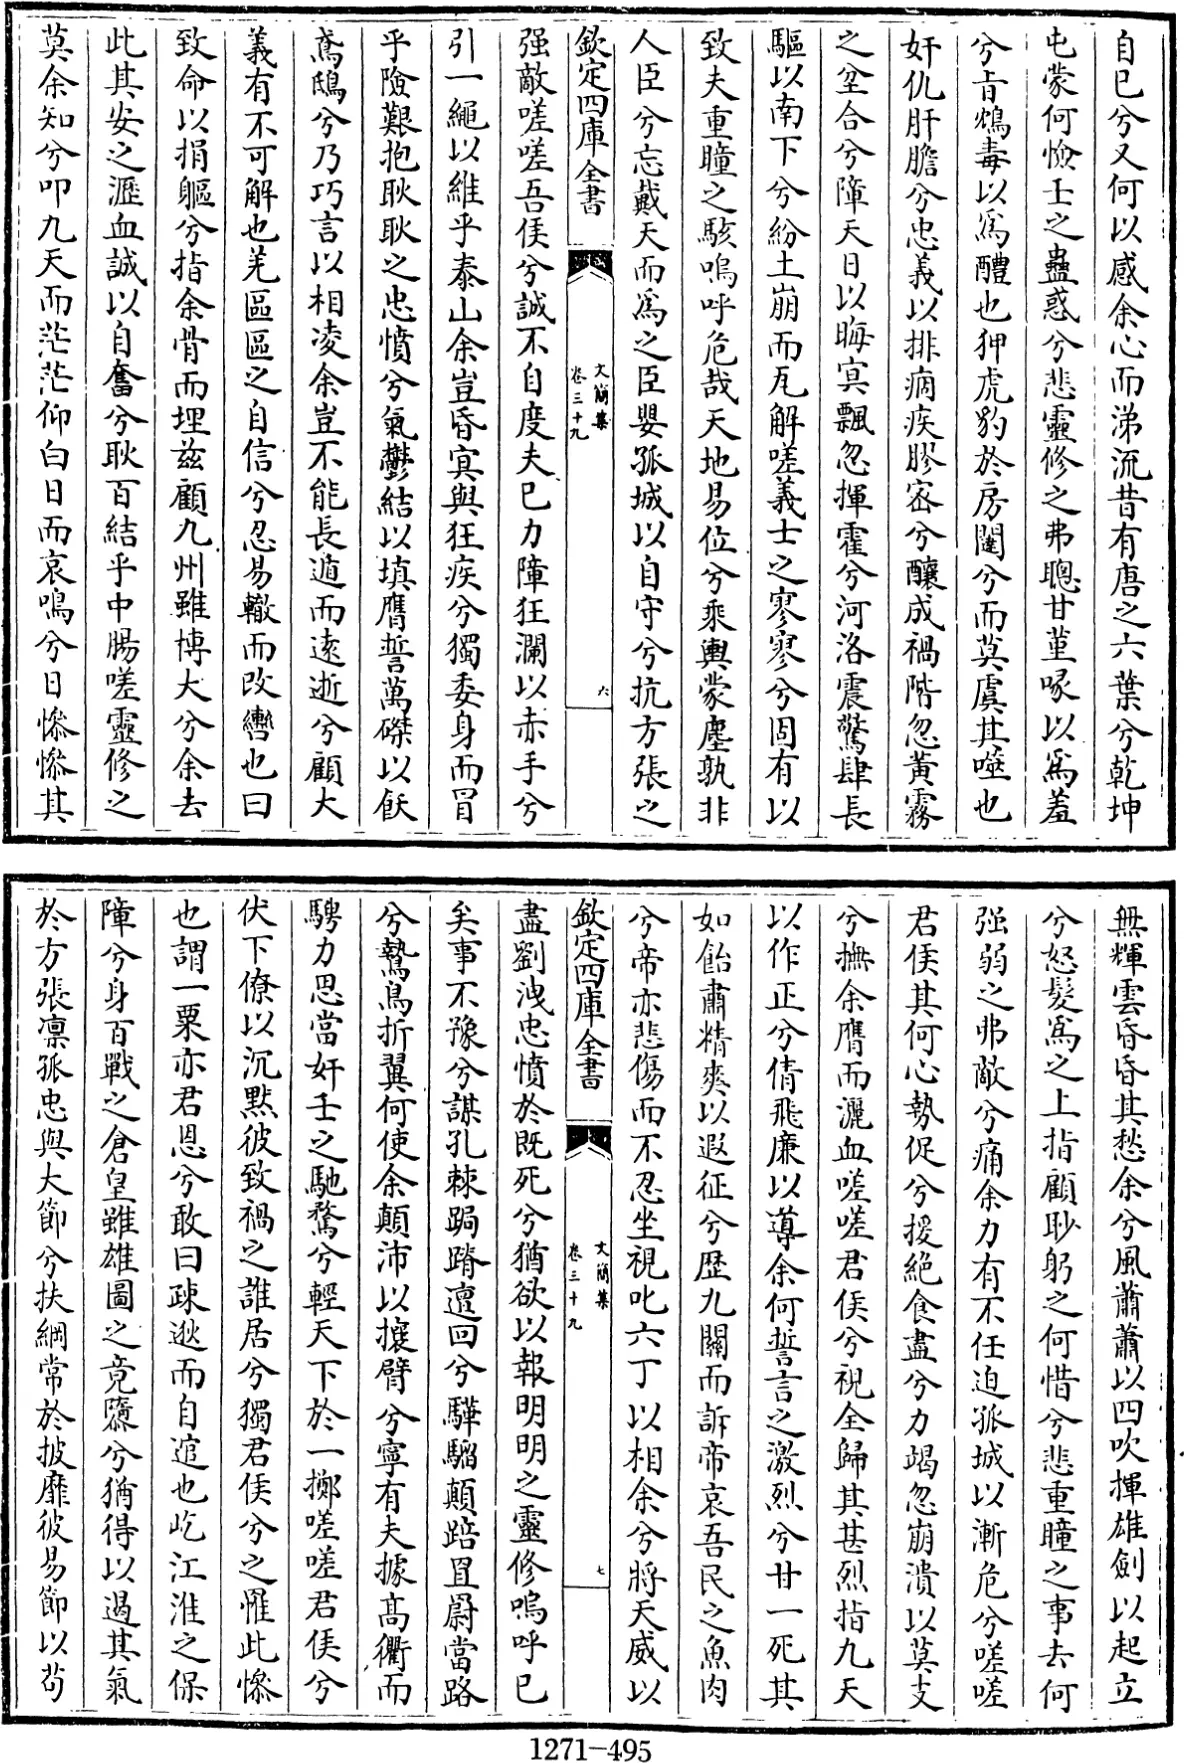 自已兮又何以感余心而涕流昔有唐之六葉兮乾坤
屯蒙何憸壬之蠱惑兮悲靈修之弗聰甘堇啄以為羞
兮旨鴆毒以為醴也狎虎豹於房闥兮而莫虞其噬也
奸仇肝膽兮忠義以排痾疾膠宻兮釀成禍階忽黃霧
之坌合兮障天日以晦㝠飄忽揮霍兮河洛震驚肆長
驅以南下兮紛土崩而瓦解嗟義士之寥寥兮固有以
致夫重瞳之駭嗚呼危哉天地易位兮乘輿蒙塵孰非
人臣兮忘戴天而為之臣嬰孤城以自守兮抗方張之
欽定四庫全書
文簡集
卷三十九
六
强敵嗟嗟吾侯兮誠不自度夫已力障狂瀾以赤手兮
引一繩以維乎泰山余豈昏㝠與狂疾兮獨委身而冒
乎險艱抱耿耿之忠憤兮氣鬱結以填膺誓萬磔以飫
鳶鴟兮乃巧言以相凌余豈不能長遁而逺逝兮顧大
義有不可解也羌區區之自信兮忍易轍而改轡也曰
致命以捐軀兮指余骨而埋兹顧九州雖博大兮余去
此其安之瀝血誠以自奮兮耿百結乎中腸嗟靈修之
莫余知兮叩九天而茫茫仰白日而哀鳴兮日慘慘其
無輝雲昏昏其愁余兮風蕭蕭以四吹揮雄劍以起立
兮怒髮為之上指顧眇躬之何惜兮悲重瞳之事去何
强弱之弗敵兮痛余力有不任迫孤城以漸危兮嗟嗟
君侯其何心勢促兮援絶食盡兮力竭忽崩潰以莫支
兮撫余膺而灑血嗟嗟君侯兮視全歸其甚烈指九天
以作正兮倩飛廉以導余何誓言之激烈兮甘一死其
如飴肅精爽以遐征兮歴九關而訴帝哀吾民之魚肉
兮帝亦悲傷而不忍坐視叱六丁以相余兮將天威以
欽定四庫全書
文簡集
卷三十九
七
盡劉洩忠憤於既死兮猶欲以報明明之靈修嗚呼已
矣事不豫兮謀孔棘跼蹐邅回兮驊騮顛踣罝罻當路
兮鷙鳥折翼何使余顛沛以攘臂兮寧有夫據髙衢而
騁力思當奸壬之馳騖兮輕天下於一擲嗟嗟君侯兮
伏下僚以沉黙彼致禍之誰居兮獨君侯兮之罹此慘
也謂一粟亦君恩兮敢曰疎逖而自逭也屹江淮之保
障兮身百戰之倉皇雖雄圖之竟隳兮猶得以遏其氣
於方張凛孤忠與大節兮扶綱常於披靡彼易節以茍
1271-495